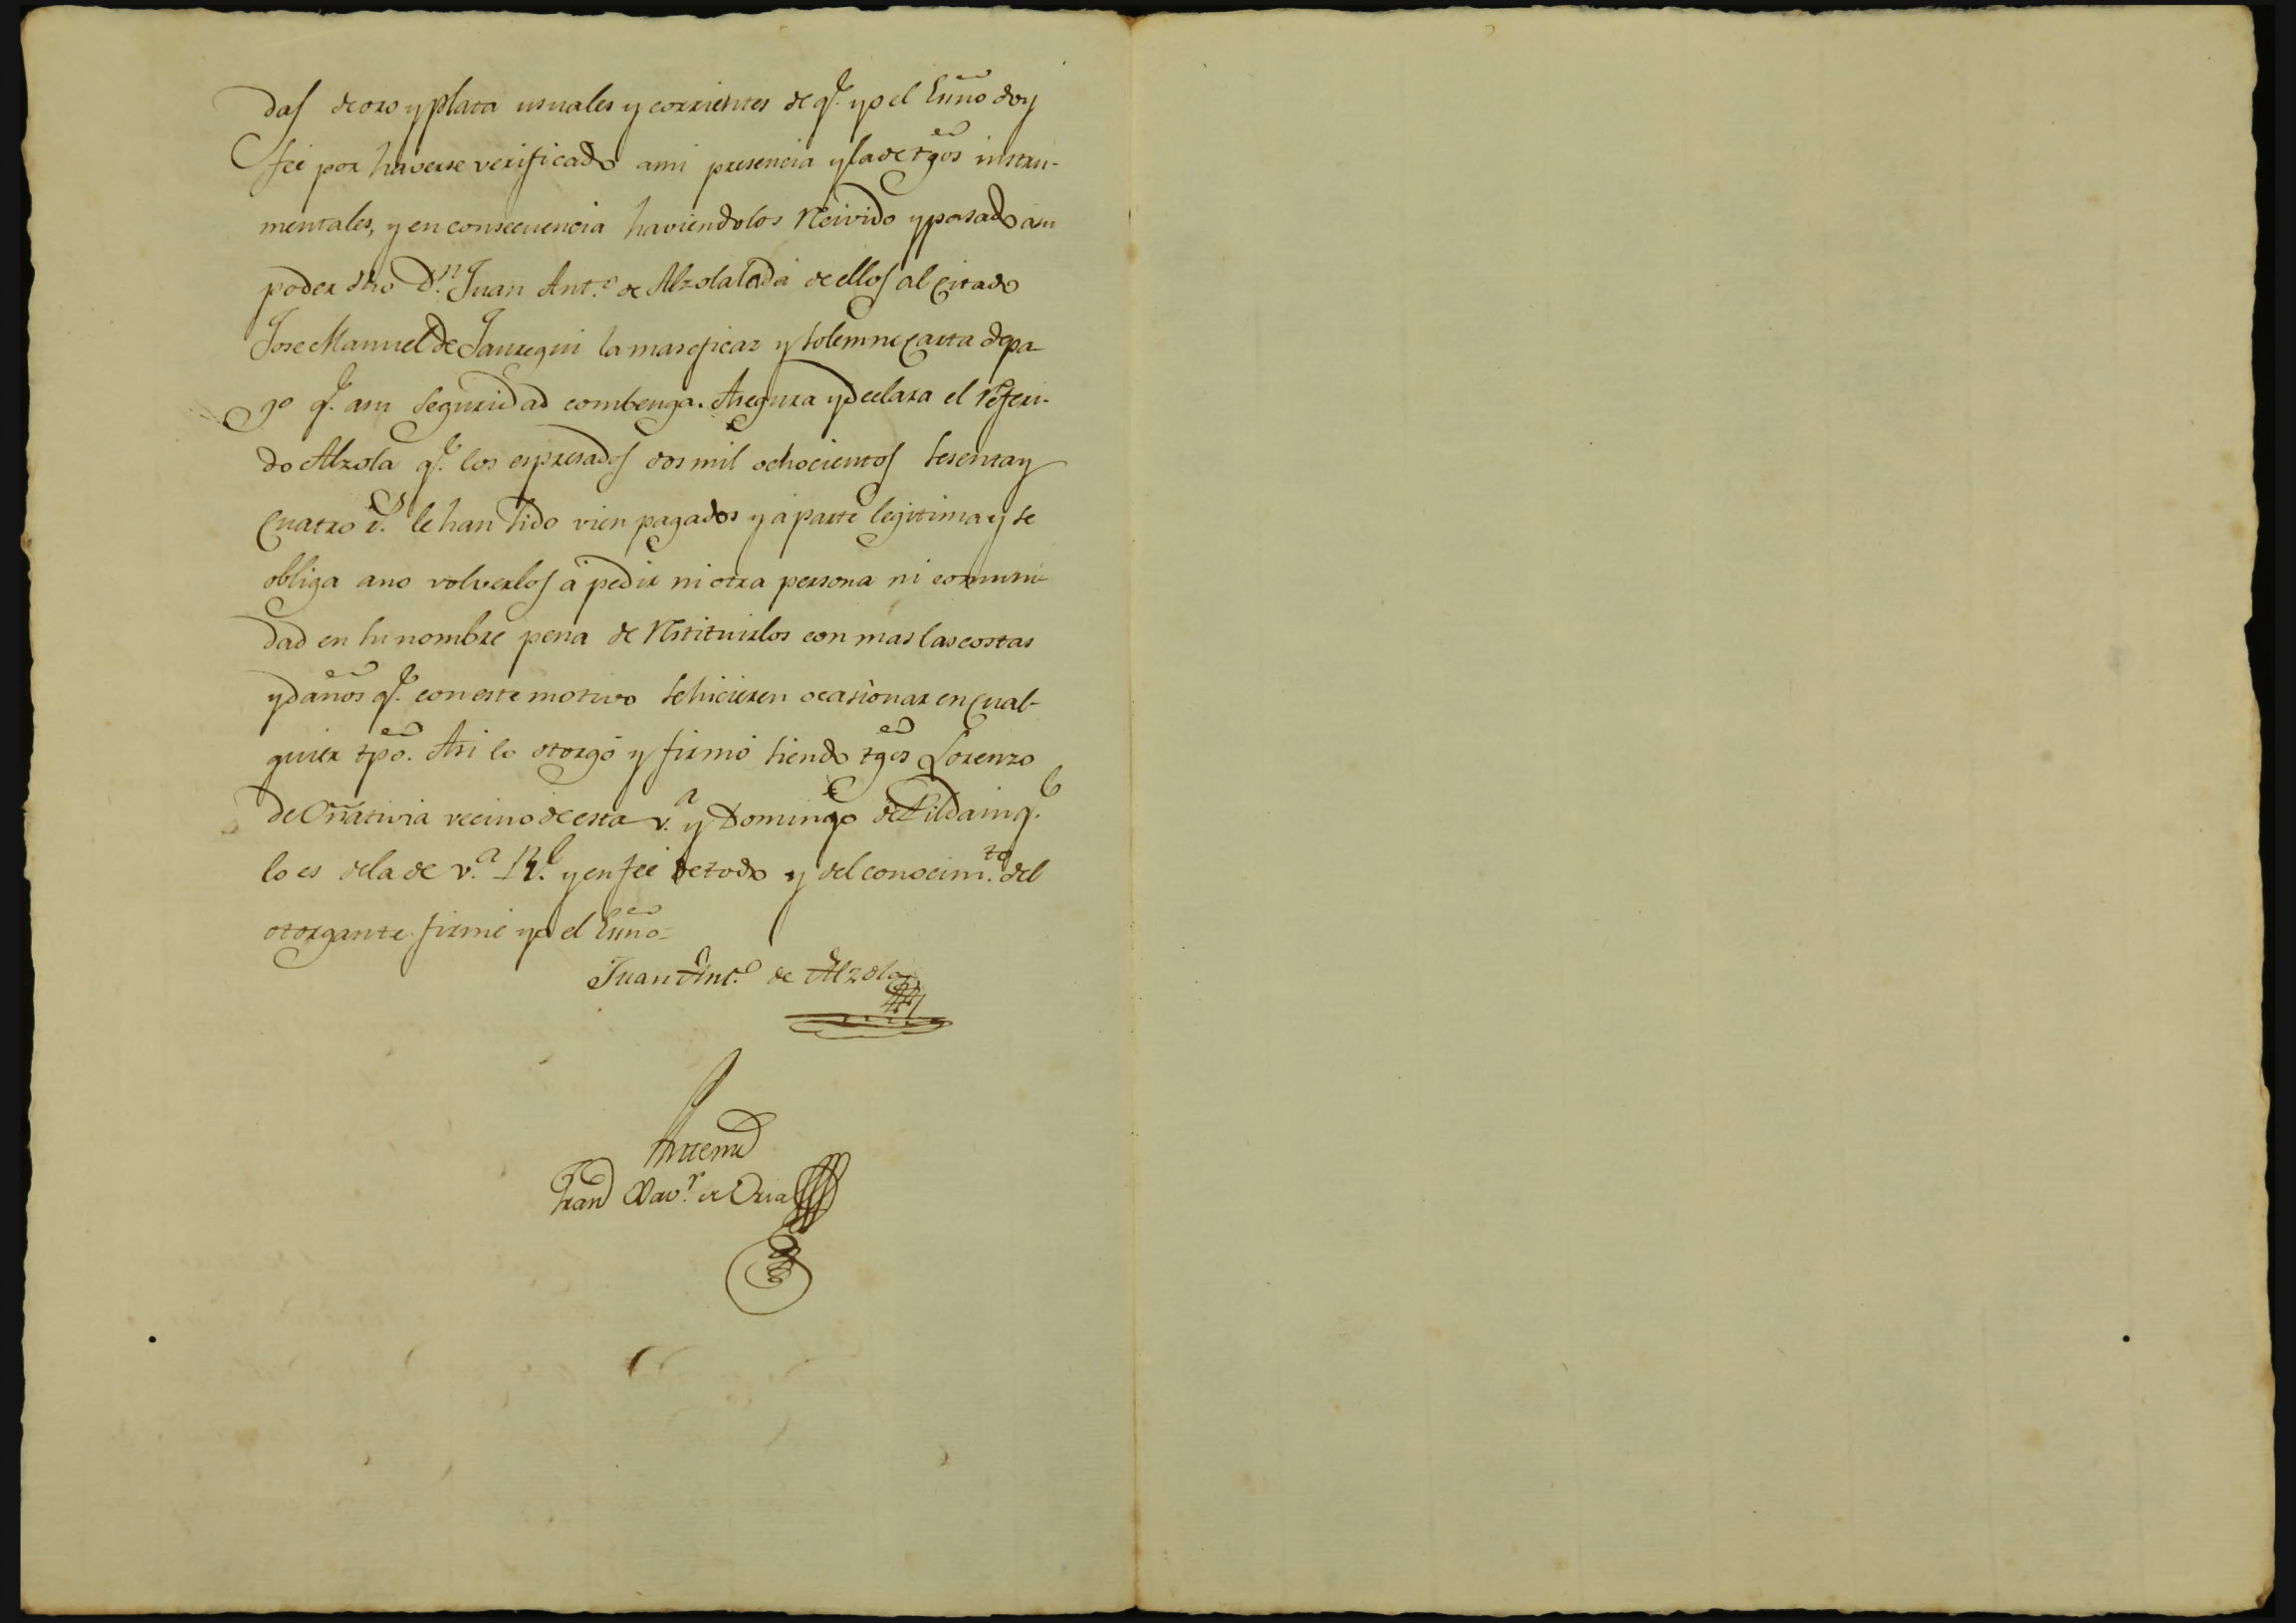 das de oro y plata usuales y corrientes de q.e yo el Essno doy
fee por haverse verificado ami presencia y la de tgos instru-
mentales, y en consecuencia haviendolos Rcivido y pasado asu
poder dho D.n Juan Ant.o de Alzola la da de ellos al citado
Jose Manuel de Jauregui la mas eficaz y solemne carta de pa-
go q.e asu seguridad combenga. Asegura y declara el Referi-
do Alzola q.e los espresados dos mil ochocientos sesenta y
cuatro r.s le han sido vien pagados y á parte legitima y se
obliga ano volverlos á pedir ni otra persona ni comuni-
dad en su nombre pena de Rstituirlos con mas las costas
y daños q.e con este motivo se hicieren ocasionar en cual-
quier tpo. Asi lo otorgó y firmó siendo tgos Lorenzo
de Oñativia vecino de esta v.a y Domingo de Gildain q.e
lo es dela de v.a R.l y en fee de todo y del conocim.to del
otorgante firmé yo el Essno=
Juan Ant.o de Alzola
Antemi
Fran.co Xav.r de Oria